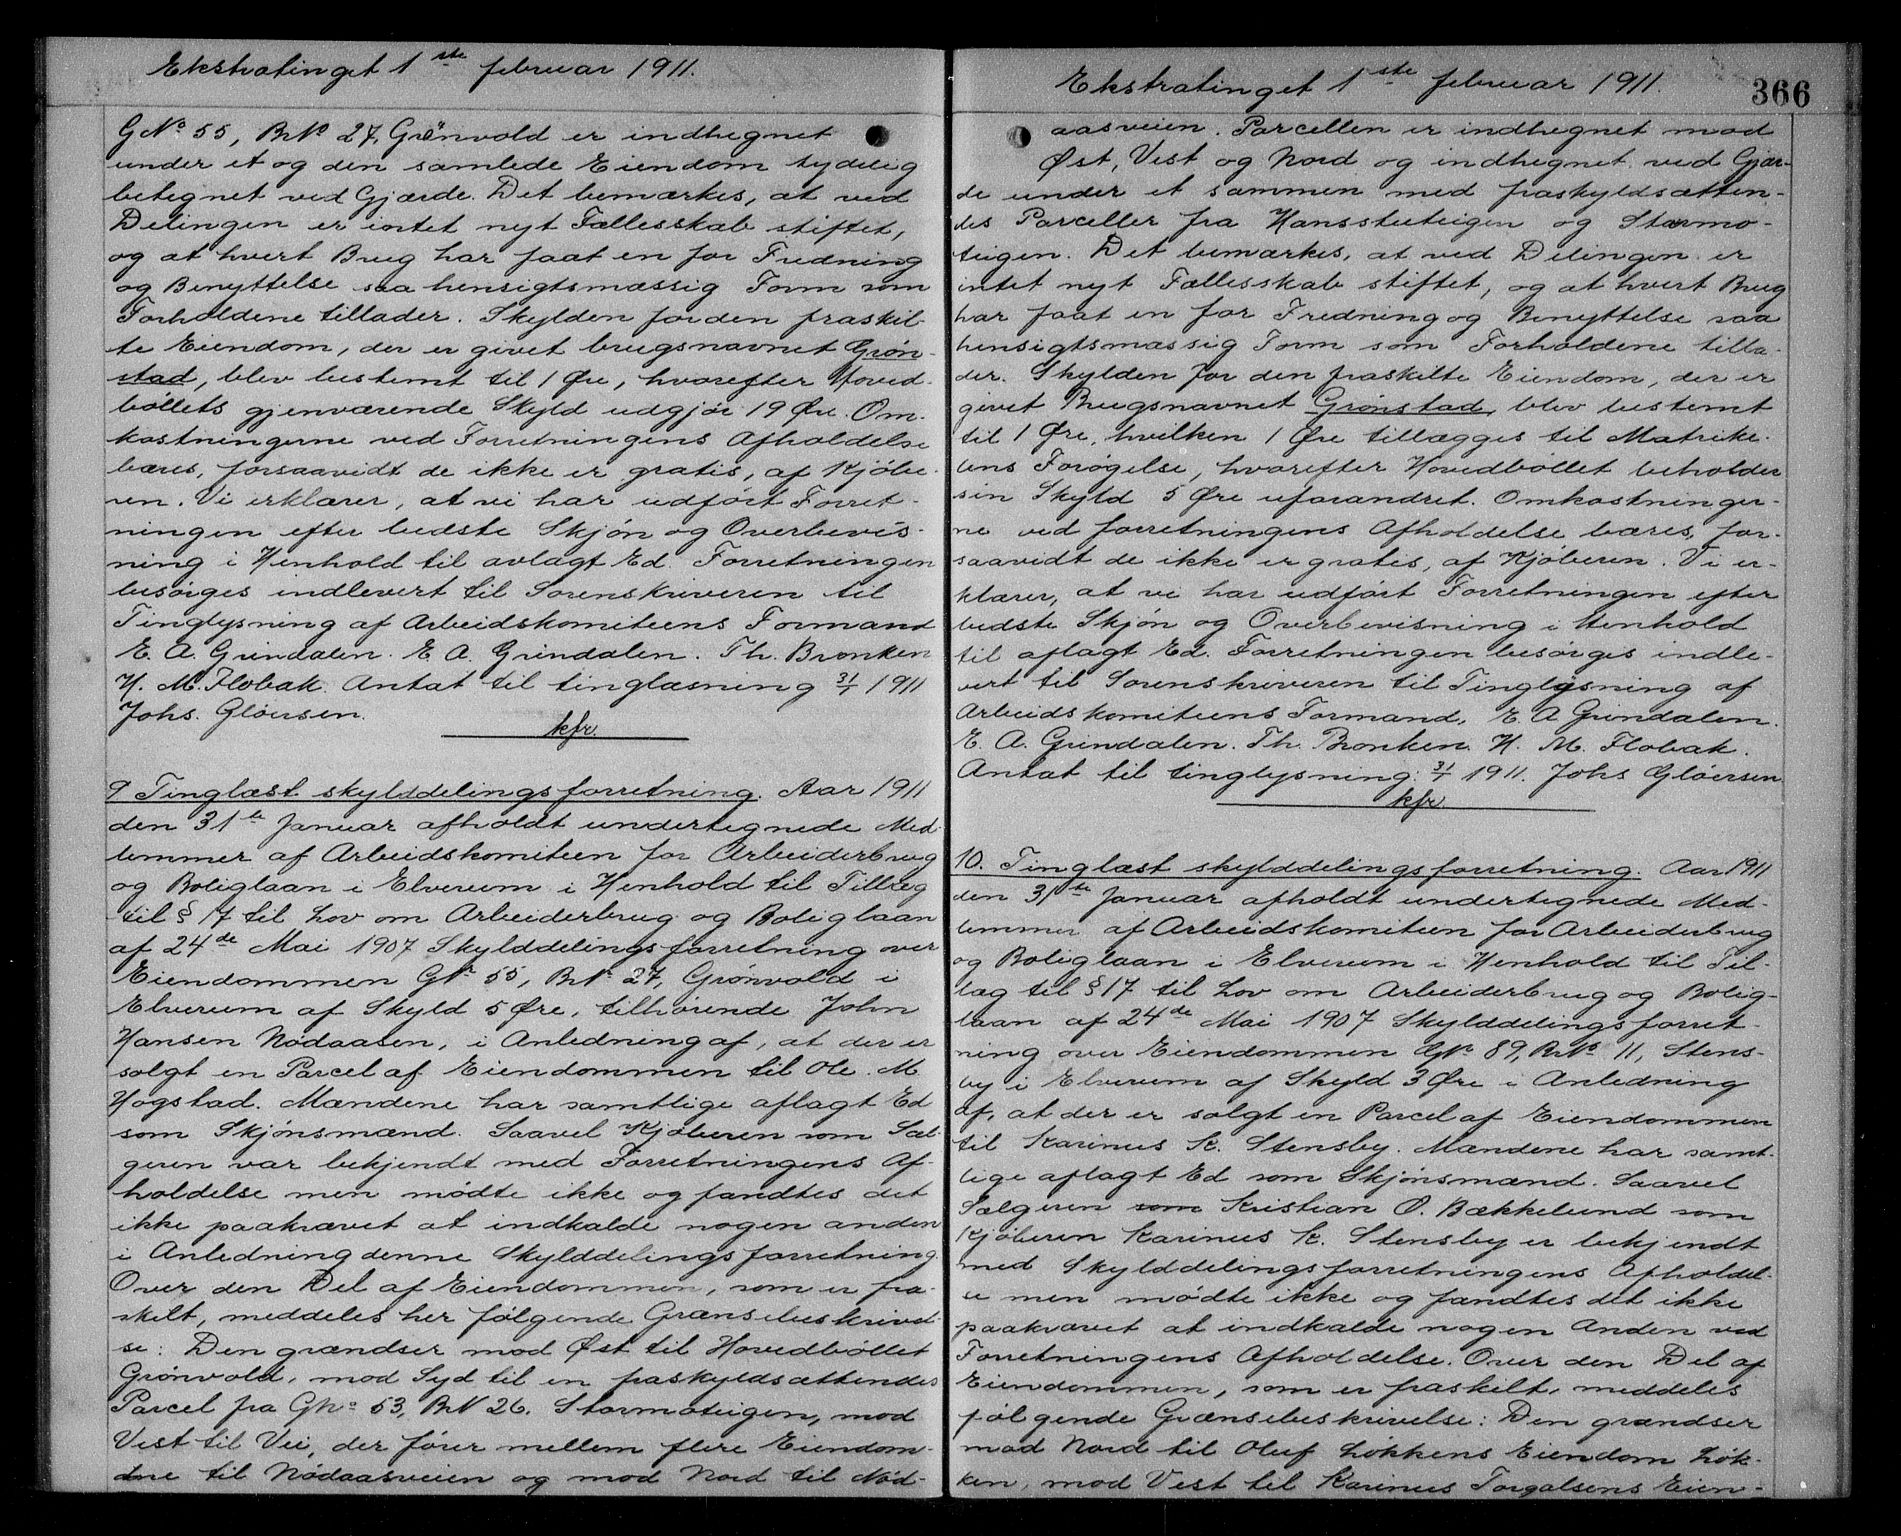 Ekstratinget 1ste februar 1911.
GNo 55, BNo 27, Grönvold er indhegnet
under et og den samlede Eiendom tydelig
betegnet ved Gjærde. Det bemærkes, at ved
Delingen er intet nyt Fællesskab stiftet,
og at hvert Brug har faat en for Fredning
og Benyttelse saa hensigtsmæssig Form som
Forholdene tillader. Skylden for den fraskil-
te Eiendom, der er givet brugsnavnet Grøn-
stad, blev bestemt til 1 Øre, hvorefter Hoved-
böllets gjenværende Skyld udgjör 19 Øre. Om-
kostningerne ved Forretningens Afholdelse
bæres, forsaavidt de ikke er gratis, af Kjöbe-
ren. Vi erklærer, at vi har udfört Forret-
ningen efter bedste Skjön og Overbevis-
ning i Henhold til avlagt Ed. Forretningen
besörges indlevert til Sorenskriveren til
Tinglysning af Arbeidskomiteens Formand
E. A. Grindalen. E. A. Grindalen. Th. Bronken
H. M. Flobak. Antat til tinglæsning 31/1 1911
Johs. Glöersen.
kfr.
9 Tinglæst skylddelingsforretning. Aar 1911
den 31te Januar afholdt undertegnede Med-
lemmer af Arbeidskomiteen for Arbeiderbrug
og Boliglaan i Elverum i Henhold til Tillæg
til § 17 til Lov om Arbeiderbrug og Boliglaan
af 24de Mai 1907 Skylddelingsforretning over
Eiendommen GNr 55, BNr 27, Grønvold i
Elverum af Skyld 5 Øre, tilhørende John
Hansen Nödaasen, i Anledning af, at der er
solgt en Parcel af Eiendommen til Ole. M.
Hogstad. Mændene har samtlige aflagt Ed
som Skjönsmænd. Saavel Kjöberen som Sæl-
geren var bekjendt med Forretningens Af-
holdelse men mödte ikke og fandtes det
ikke paakrævet at indkalde nogen anden
i Anledning denne Skylddelingsforretning
Over den Del af Eiendommen, som er fra-
skilt, meddeles her følgende Grænsebeskrivel-
se: Den grændser mod Øst til Hovedböllet
Grönvold, mod Syd til en fraskyldsættendes
Parcel fra GNo 53, BN 26. Stormoteigen, mod
Vest til Vei, der förer mellem flere Eiendom-
me til Nödaasveien og mod Nord til Nöd-
Ekstratinget 1ste februar 1911.
366
aasveien. Parcellen er indhegnet mod
Øst, Vest og Nord og indhegnet ved Gjær-
de under et sammen med fraskyldsætten-
des Parceller fra Hansstuteigen og Stormo-
teigen. Det bemærkes, at ved Delingen er
intet nyt Fællesskab stiftet, og at hvert Brug
har faat en for Fredning og Benyttelse saa
hensigtsmæssig Form som Forholdene tilla-
der. Skylden for den fraskilte Eiendom, der er
givet Brugsnavnet Grønstad, blev bestemt
til 1 Øre, hvilken 1 Øre tillægges til Matrike-
lens Forøgelse, hvorefter Hovedböllet beholder
sin Skyld 5 Øre uforandret. Omkostninger-
ne ved forretningens Afholdelse bæres, for-
saavidt de ikke er gratis, af Kjöberen. Vi er-
klærer, at vi har udfört Forretningen efter
bedste Skjön og Overbevisning i Henhold
til aflagt Ed. Forretningen besörges indle-
vert til Sorenskriveren til Tinglysning af
Arbeidskomiteens Formand, E. A Grindalen.
E. A. Grindalen. Th. Bronken. H. M. Flobak.
Antat til tinglysning: 31/1 1911. Johs Glöersen
kfr.
10. Tinglæst skylddelingsforretning. Aar 1911
den 31te Januar afholdt undertegnede Med-
lemmer af Arbeidskomiteen for Arbeiderbrug
og Boliglaan i Elverum i Henhold til Til-
læg til § 17 til Lov om Arbeiderbrug og Bolig-
laan af 24de Mai 1907 Skylddelingsforret-
ning over Eiendommen GNo 89, BNo 11, Stens-
by i Elverum af Skyld 3 Øre i Anledning
af, at der er solgt en Parcel af Eiendommen
til Karinus K. Stensby. Mændene har samt-
lige aflagt Ed som Skjønsmænd. Saavel
Sælgeren som Kristian O. Bækkelund som
Kjöberen Karinus K. Stensby er bekjendt
med Skylddelingsforretningens Afholdel-
se men mödte ikke og fandtes det ikke
paakrævet at indkalde nogen Anden ved
Forretningens Afholdelse. Over den Del af
Eiendommen, som er fraskilt, meddeles
følgende Grænsebeskrivelse: Den grændser
mod Nord til Oluf Lökkens Eiendom Lök-
ken, mod Vest til Karinus Torgalsens Eien-